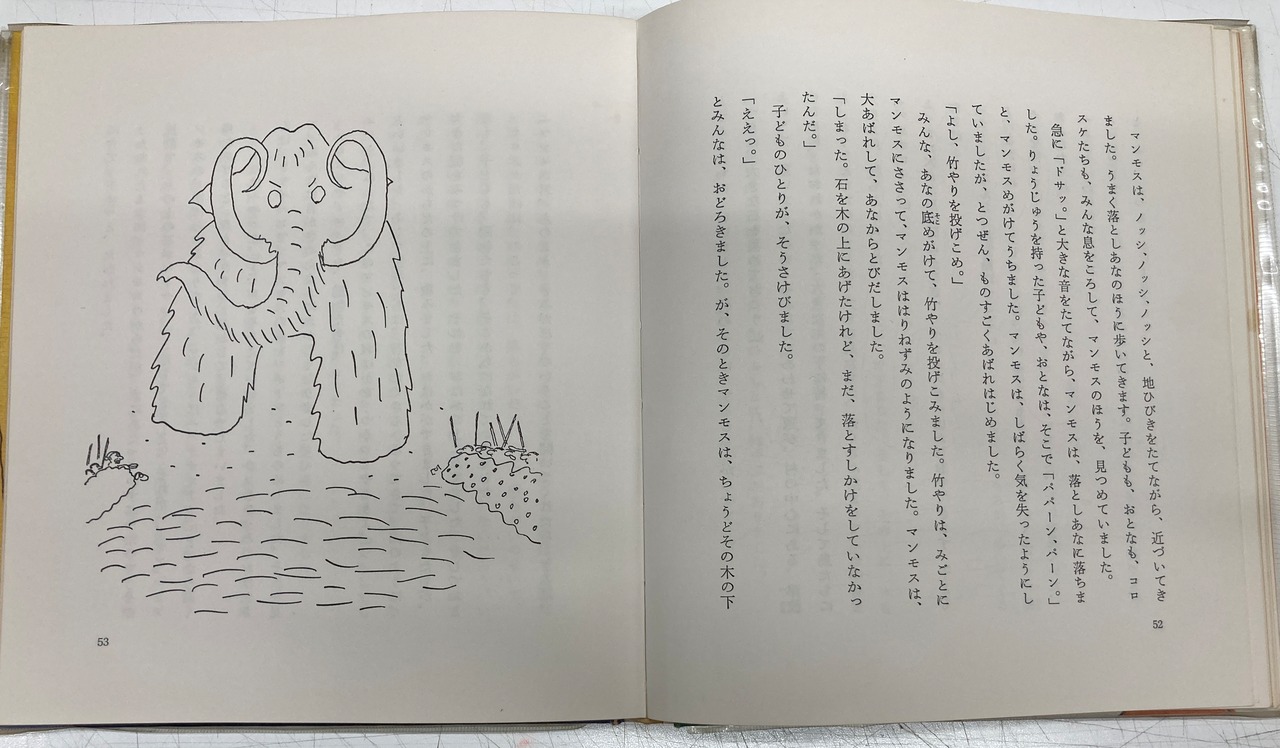 マンモスは、ノッシ、ノッシ、ノッシと、地ひびきをたてながら、近づいてき
ました。うまく落としあなのほうに歩いてきます。子どもも、おとなも、コロ
スケたちも、みんな息をころして、マンモスのほうを、見つめていました。
急に「ドサッ。」と大きな音をたてながら、マンモスは、落としあなに落ちま
した。りょうじゅうを持った子どもや、おとなは、そこで「パパーン、パーン。」
と、マンモスめがけてうちました。マンモスは、しばらく気を失ったようにし
ていましたが、とつぜん、ものすごくあばれはじめました。
「よし、竹やりを投げこめ。」
みんな、あなの底めがけて、竹やりを投げこみました。竹やりは、みごとに
マンモスにささって、マンモスははりねずみのようになりました。マンモスは、
大あばれして、あなからとびだしました。
「しまった。石を木の上にあげたけれど、まだ、落とすしかけをしていなかっ
たんだ。」
子どものひとりが、そうさけびました。
「ええっ。」
とみんなは、おどろきました。が、そのときマンモスは、ちょうどその木の下
52
53